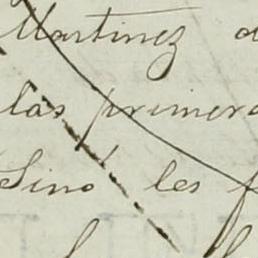 Martinez
las primera
Sino les